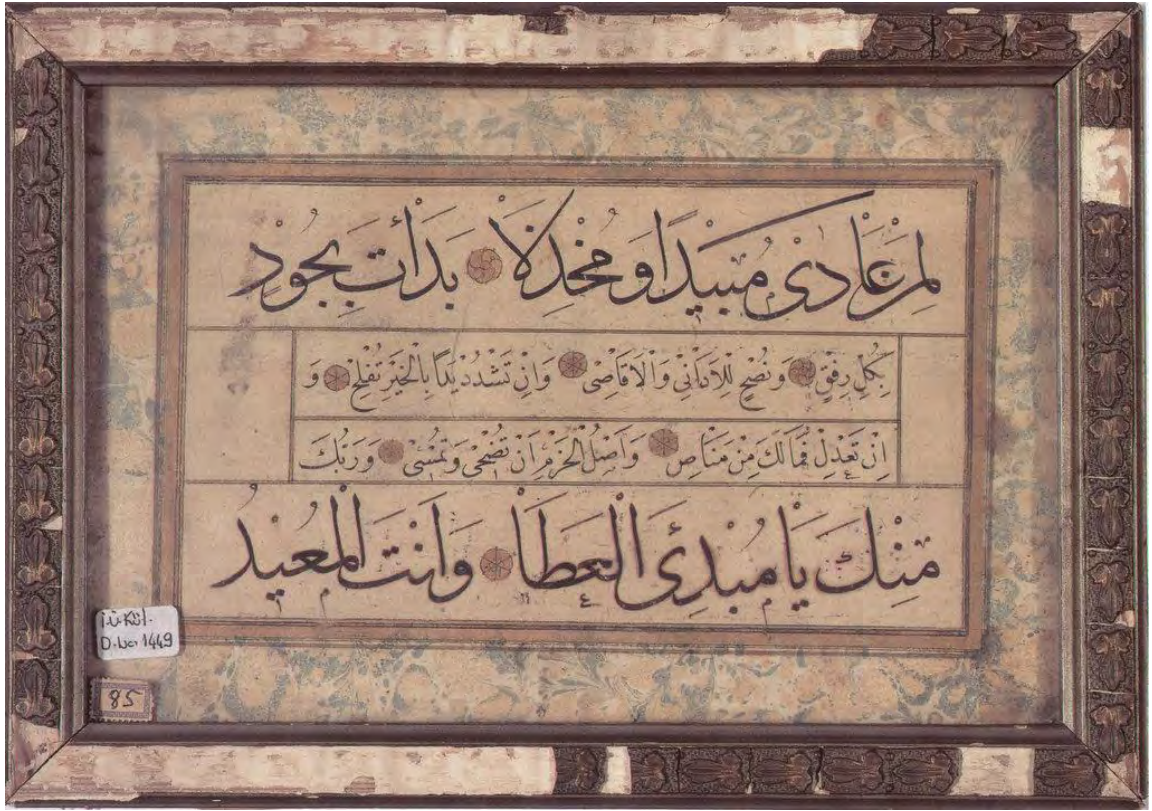 لِمَنْ عَادٰى مُبِيدًا وَمُخْذِلًا بَدَأْتَ بِجُودٍ
بِكُلِّ رِفْقٍ وَنُصْحٍ لِلْاَدَانِى وَالْاَقَاصِى وَاِنْ تَشْدُدْ يَدًا بِالْخَيْرِ تُفْلِحْ وَ
اِنْ تَعْدِلْ فَمَا لَكَ مِنْ مَنَاصٍ وَاَصْلُ الْحَزْمِ اَنْ تُضْحِى وَتُمْسِى وَرَبُّكَ
مِنْكَ يَا مُبْدِئَ الْعَطَا وَاَنْتَ الْمُعِيدُ
1449
85